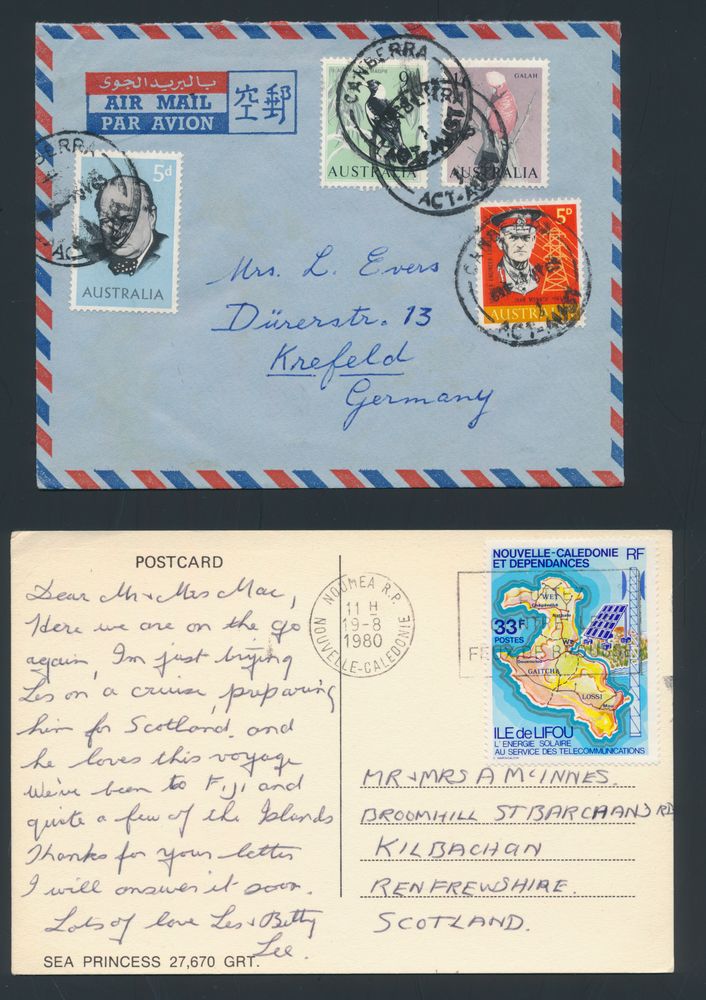 بالبريد الجوى
AIR MAIL
PAR AVION
空郵
CANBERRA
ACT-AUST
5d
AUSTRALIA
AUSTRALIA
GALAH
AUSTRALIA
5D
AUSTRALIA
Mrs. L. Evers
Dürerstr. 13
Krefeld
Germany
POSTCARD
Dear Mr & Mrs Mac,
Here we are on the go
again, I'm just trying
Les on a cruise, preparing
him for Scotland, and
he loves this voyage
We've been to Fiji and
quite a few of the Islands
Thanks for your letter
I will answer it soon.
Lots of love Les & Betty
Lee.
SEA PRINCESS 27,670 GRT.
NOUMEA R.P.
11 H
19-8
1980
NOUVELLE-CALEDONIE
NOUVELLE-CALEDONIE RF
ET DEPENDANCES
33F
POSTES
WET
GAITCHA
LOSSI
ILE de LIFOU
L'ENERGIE SOLAIRE
AU SERVICE DES TELECOMMUNICATIONS
MR & MRS A McINNES.
BROOMHILL ST BARCHANS RD
KILBACHAN
RENFREWSHIRE.
SCOTLAND.